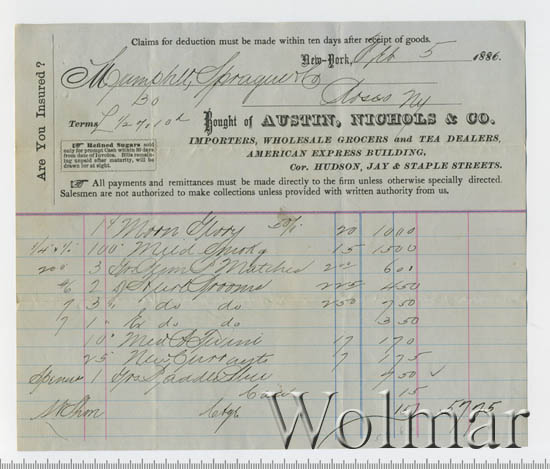 Claims for deduction must be made within ten days after receipt of goods.
Are You Insured?
New-York, 5 1886.
Sprague & Co
Terms
Bought of AUSTIN, NICHOLS & CO.
IMPORTERS, WHOLESALE GROCERS and TEA DEALERS,
AMERICAN EXPRESS BUILDING,
Cor. HUDSON, JAY & STAPLE STREETS.
☞ Refined Sugars sold only for prompt Cash within 30 days from date of Invoice. Bills remaining unpaid after maturity, will be drawn for at sight.
☞ All payments and remittances must be made directly to the firm unless otherwise specially directed.
Salesmen are not authorized to make collections unless provided with written authority from us.
1 Moon 20 10 00
100 Mild Smokg 15 15 00
200 3 Matches 200 6 00
2 Brooms 225 4 50
7 3 " do do 250 7 50
7 1 " do do 3 50
10 17 1 70
25 New Currants 7 1 75
1 4 50
15
Ctge 57 75
Wolmar